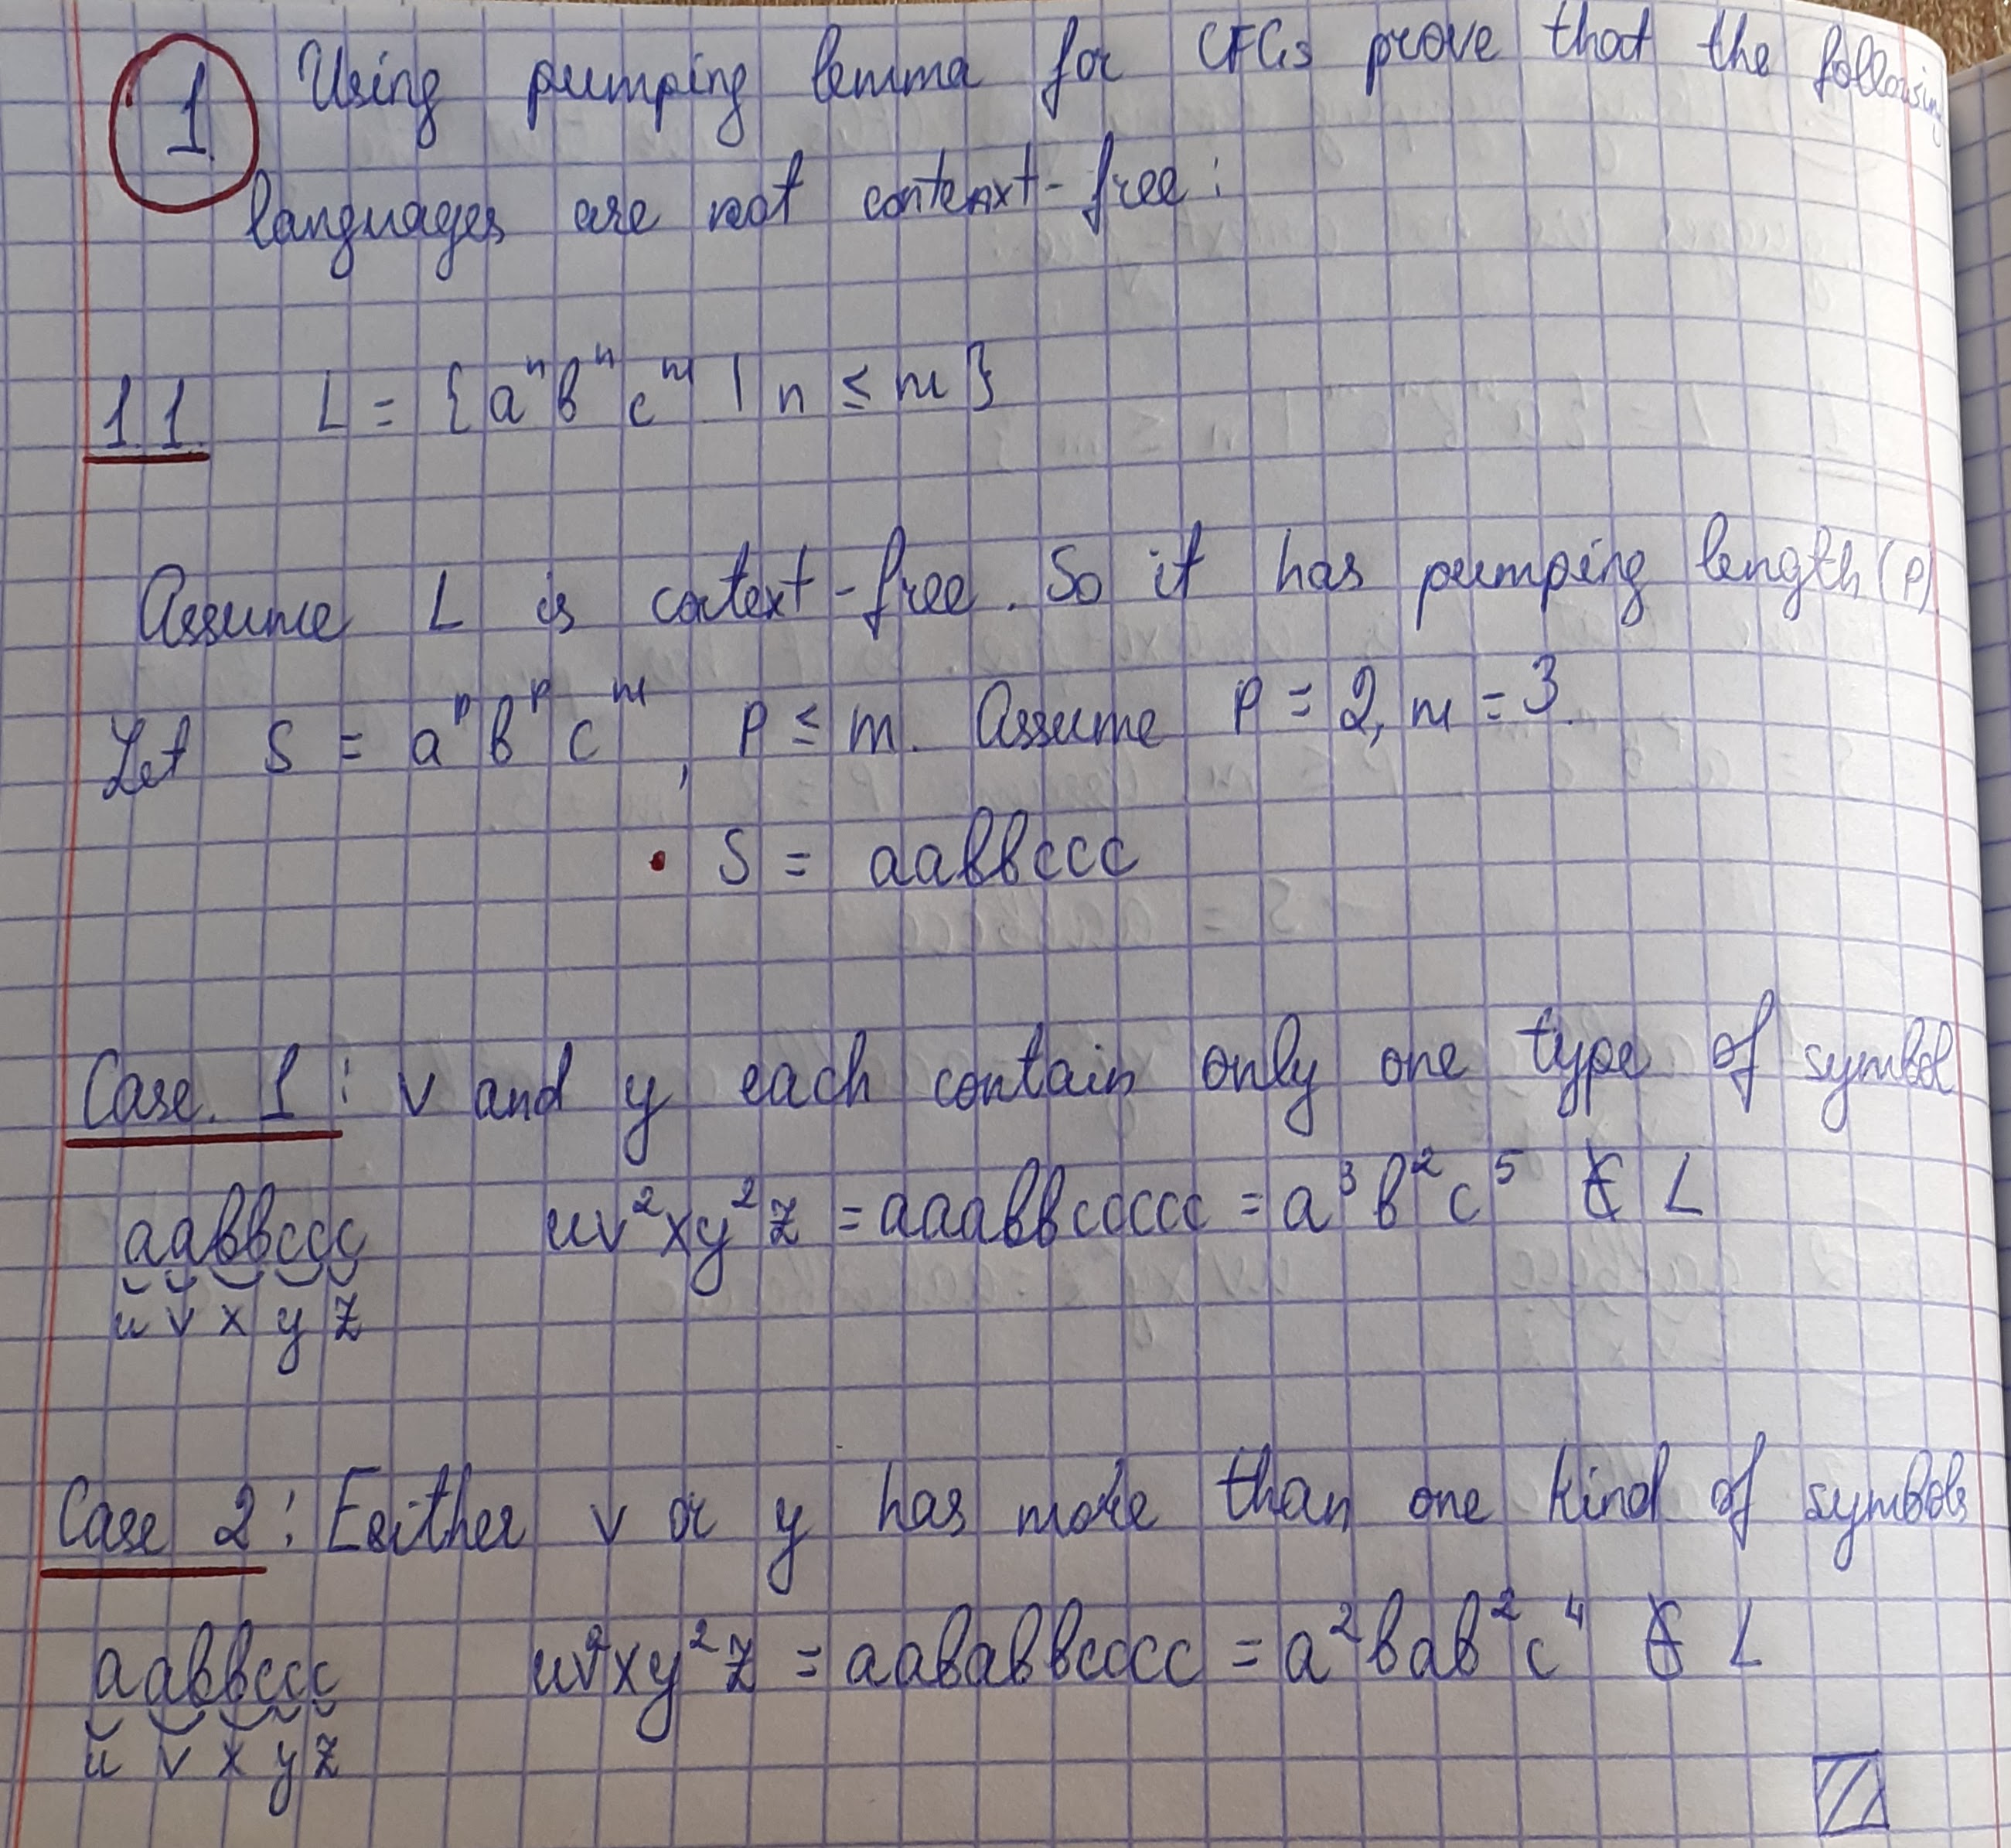 1 Using pumping lemma for CFGs prove that the following
languages are not context-free:
1.1. L = {aⁿbⁿcᵐ | n ≤ m}
Assume L is context-free. So it has pumping length (P)
Let S = aᵖbᵖcᵐ, P ≤ m. Assume P = 2, m = 3.
• S = aabbccc
Case. 1: v and y each contain only one type of symbol
aabbccc uv²xy²z = aaabbccccc = a³b²c⁵ ∉ L
u v x y z
Case 2: Eeither v or y has more than one kind of symbols
aabbccc uv²xy²z = aababbcccc = a²bab²c⁴ ∉ L
u v x y z